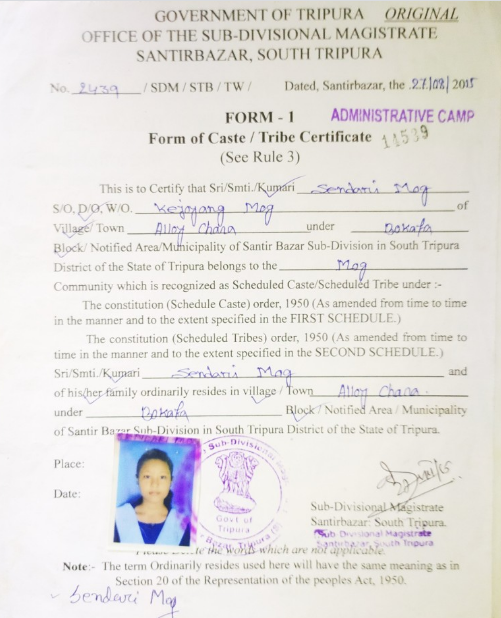 GOVERNMENT OF TRIPURA ORIGINAL
OFFICE OF THE SUB-DIVISIONAL MAGISTRATE
SANTIRBAZAR, SOUTH TRIPURA
No. 2439 / SDM / STB / TW / Dated, Santirbazar, the 27/08/2015
FORM - 1 ADMINISTRATIVE CAMP
Form of Caste / Tribe Certificate 14539
(See Rule 3)
This is to Certify that Sri/Smti./Kumari Sendarii Mog
S/O, D/O, W/O. Kejoyang Mog of
Village/ Town Alloy Chara under Bokafa
Block/ Notified Area/Municipality of Santir Bazar Sub-Division in South Tripura
District of the State of Tripura belongs to the Mog
Community which is recognized as Scheduled Caste/Scheduled Tribe under :-
The constitution (Schedule Caste) order, 1950 (As amended from time to time
in the manner and to the extent specified in the FIRST SCHEDULE.)
The constitution (Scheduled Tribes) order, 1950 (As amended from time to
time in the manner and to the extent specified in the SECOND SCHEDULE.)
Sri/Smti./Kumari Sendarii Mog and
of his/her family ordinarily resides in village / Town Alloy Chara.
under Bokafa Block / Notified Area / Municipality
of Santir Bazar Sub-Division in South Tripura District of the State of Tripura.
Place:
Date:
Sub-Divisional
Govt of
Tripura
Bazar, Tripura
Sub-Divisional Magistrate
Santirbazar: South Tripura.
Sub Divisional Magistrate
Santirbazar, South Tripura
the Words which are not applicable.
Note:- The term Ordinarily resides used here will have the same meaning as in
Section 20 of the Representation of the peoples Act, 1950.
Sendari Mog